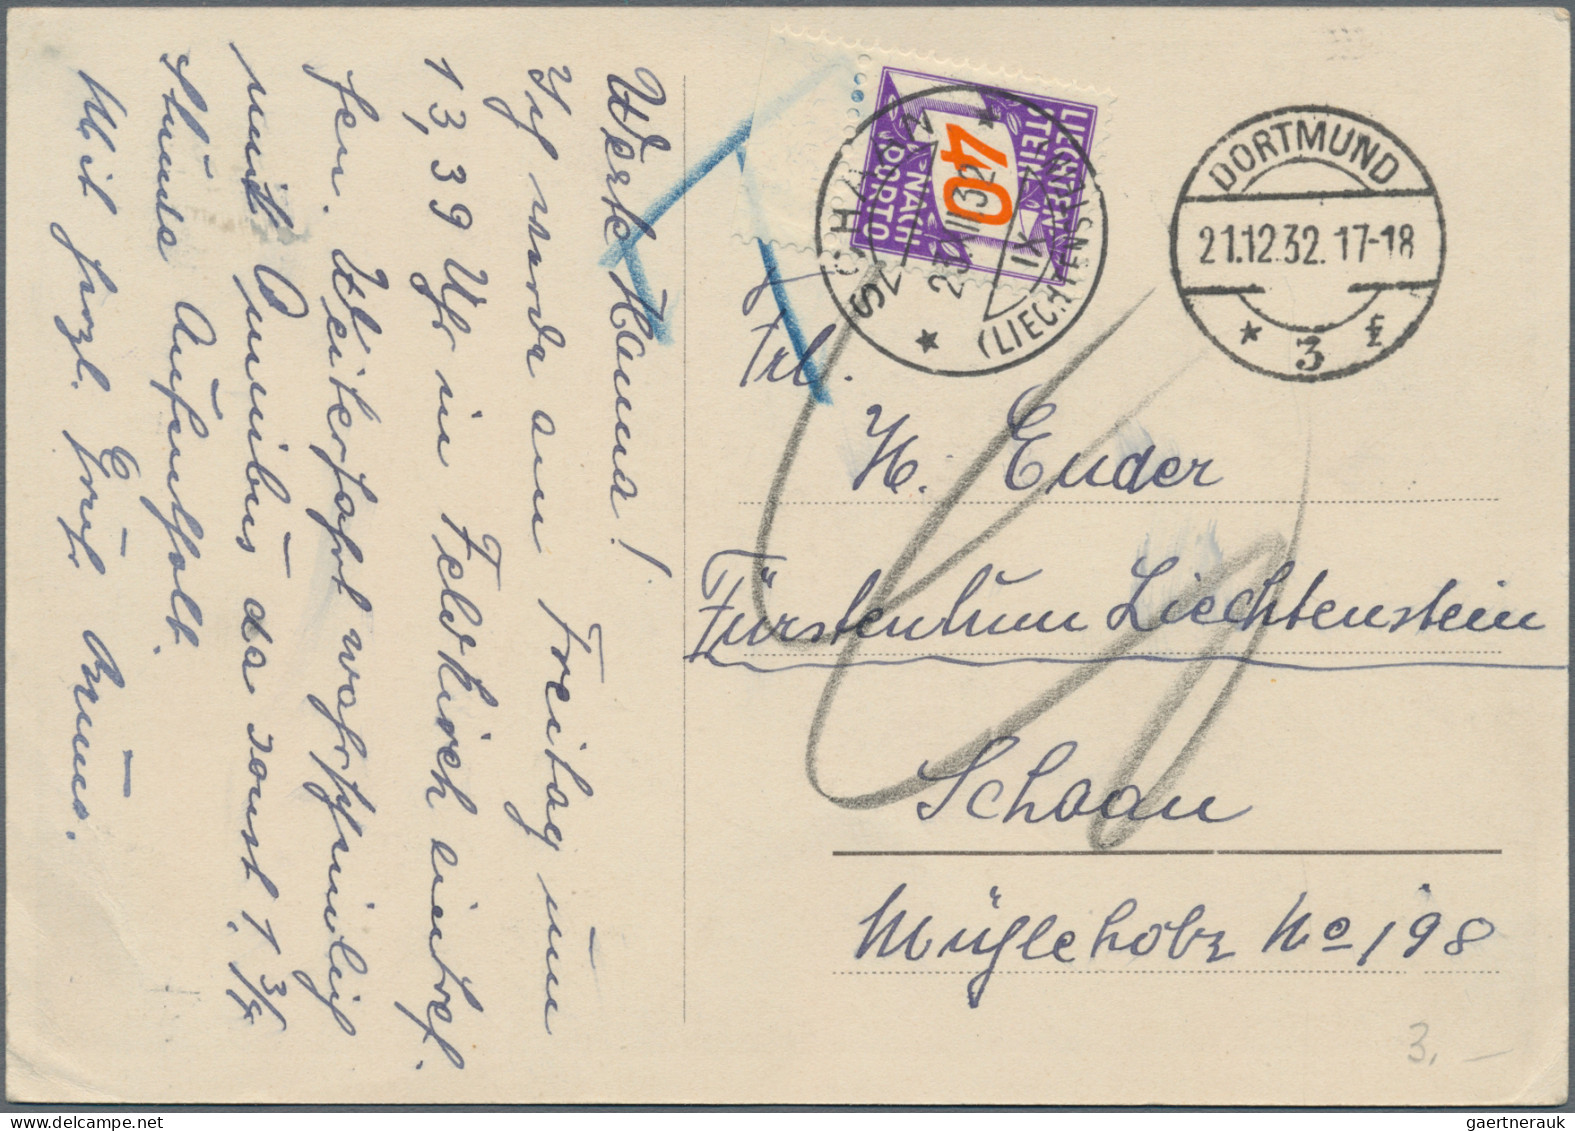 Werte Hanna!
Ich werde am Freitag um
13,39 Uhr in Feldkirch eintref-
fen. Weiterfahrt wahrscheinlich
mit Omnibus da sonst 1 3/4
Stunde Aufenthalt.
Mit herzl. Gruß
LIECHTEN-
STEIN
NACH-
PORTO
40
SCHAAN
23.XII.32
IX
XI
(LIECHTENSTEIN)
DORTMUND
21.12.32. 17-18
* 3 f
T
Frl.
H. Euder
Fürstentum Liechtenstein
Schaan
Mühleholz No 198
3,-
gaertnerauk